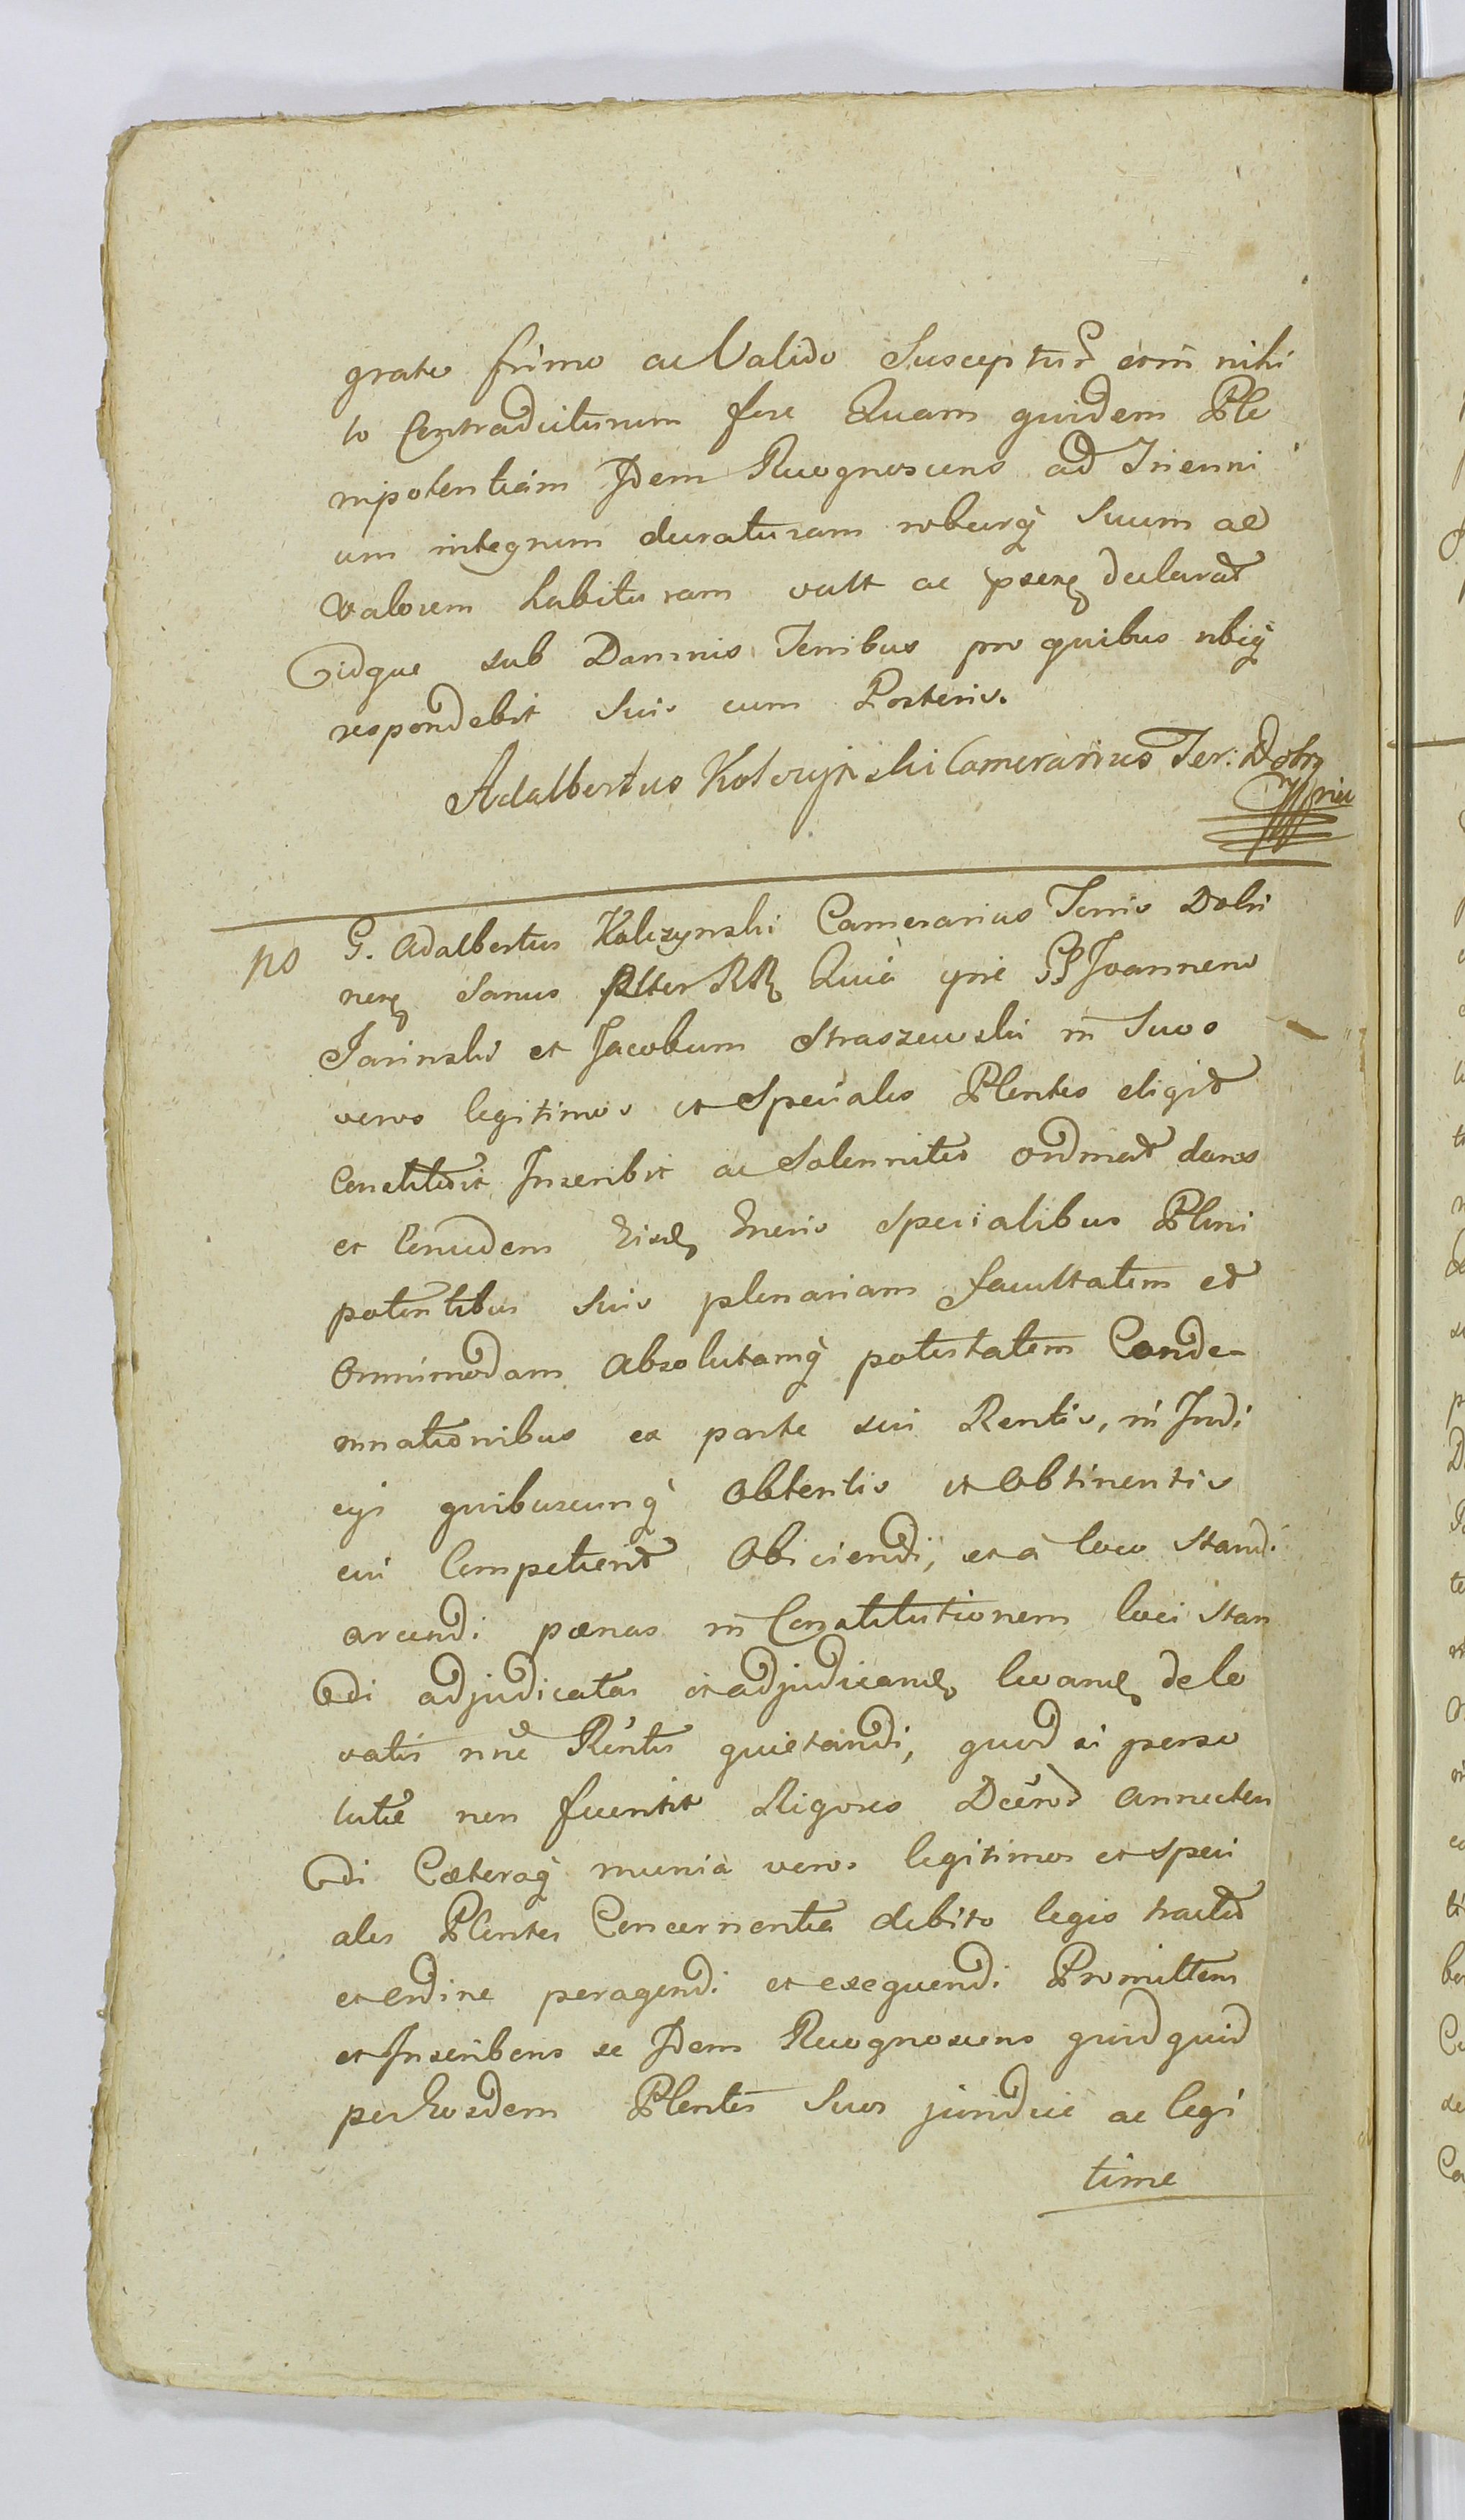 grate firmo ac Valido Suscepturũ eũm nihi
lo Contradicturum fore Quam quidem Ple
nipotentiam Idem Recognoscens ad Trienni
um integrum duraturam roburq̀ Suum ac
valorem habituram vult ac declarat
idque sub Damnis Terribus pro quibus ubiq̀
respondebit Suis cum Posteris.
Adalbertus Kolczyński Camerarius Ter: Dobrz
G. Adalbertus Kolczynski Camerarius Terris Dobri
nen̄ Sanus Quia GG Joannem
Jasinski et Jacobum Straszewski in Suos
veros legitimos et Speciales Plentes eligit
Constituit Inscribit ac Solenniter ordinat dans
et Concedens Eisd̄ Speciálibus Pleni
potentibus suis plenariam facultatem et
Omnimodam Absolutamq̀ potestatem Conde-
mnationibus ex parte sui Rentis, in Judi
cys quibuscunq̀ Obtentis et Obtinentis
cui Competierit Obiciendi, et a loco standi
arcendi pœnas in Constitutionem loci stan
di adjudicatas et adjudicand̄ levand̄ de le
vatis nñe Rentis quietandi, quod si perso
lutæ non fuerint Rigores annecten
di Cæteraq̀ munia veros legitimos et speci
ales Plentes Concernentia debito legis tractu
et ordine peragendi et exequendi Promittens
et Inscribens se Idem Recognoscens quidquid
per Eosdem Plentes Suos juridicè ac legi
time